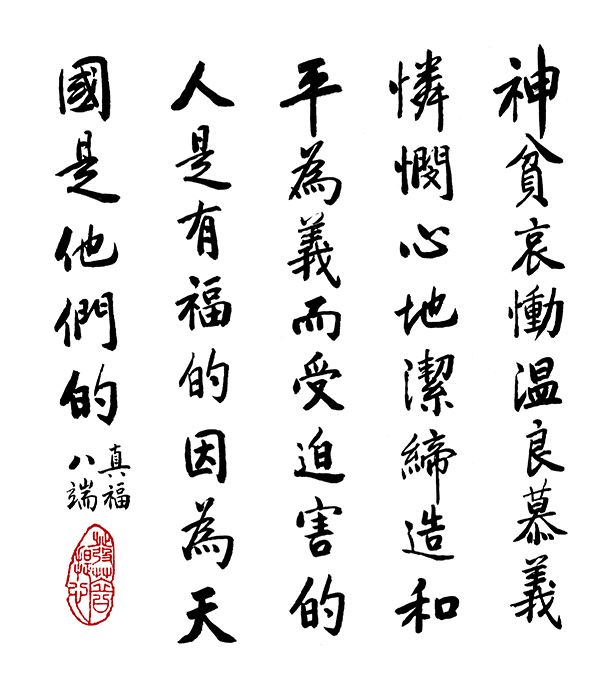 神貧哀慟温良慕義
憐憫心地潔締造和
平為義而受迫害的
人是有福的因為天
國是他們的
真福
八端